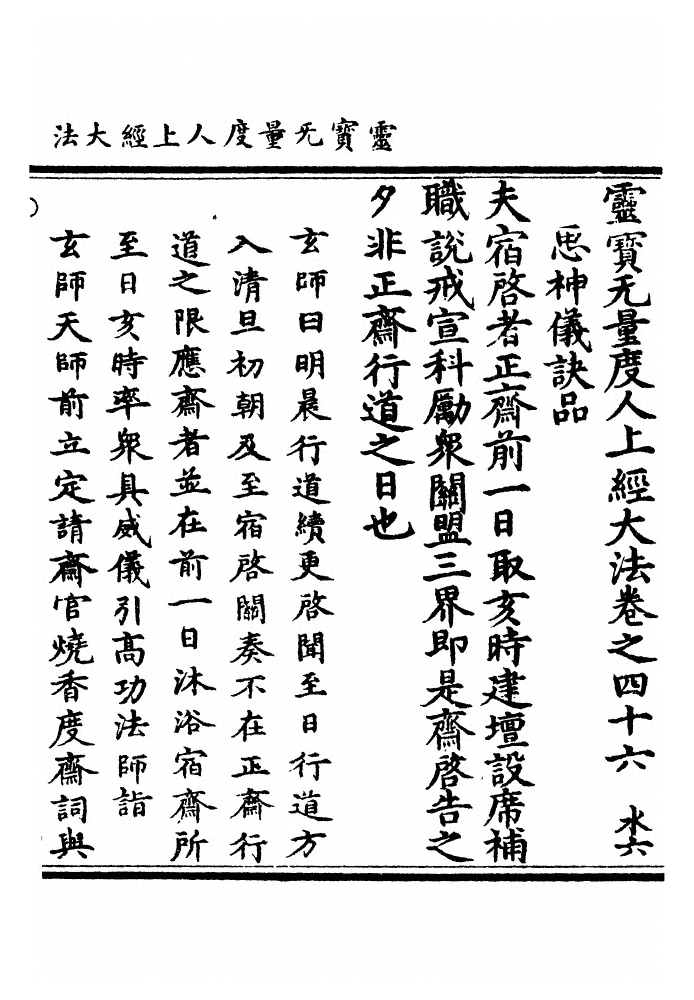 靈寶无量度人上經大法
靈寶无量度人上經大法卷之四十六 水六
思神儀訣品
夫宿啓者正齋前一日取亥時建壇設席補
職說戒宣科勵衆關盟三界即是齋啓告之
夕非正齋行道之日也
玄師曰明晨行道續更啓聞至日行道方
入清旦初朝及至宿啓關奏不在正齋行
道之限應齋者並在前一日沐浴宿齋所
至日亥時率衆具威儀引高功法師詣
玄師天師前立定請齋官燒香度齋詞與